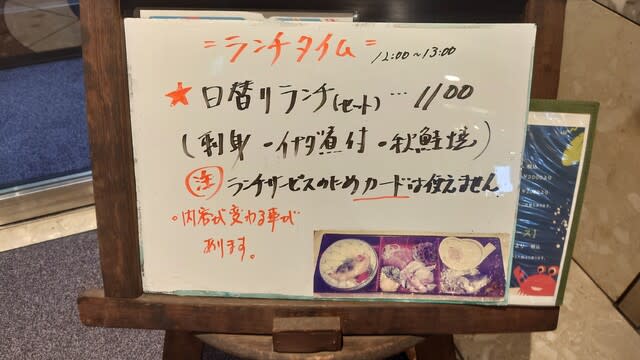 =ランチタイム= 12:00~13:00
★日替りランチ(セット)…1100
(刺身・イナダ煮付・秋鮭焼)
注 ランチサービスのためカードは使えません
。内容が変わる事が
あります。